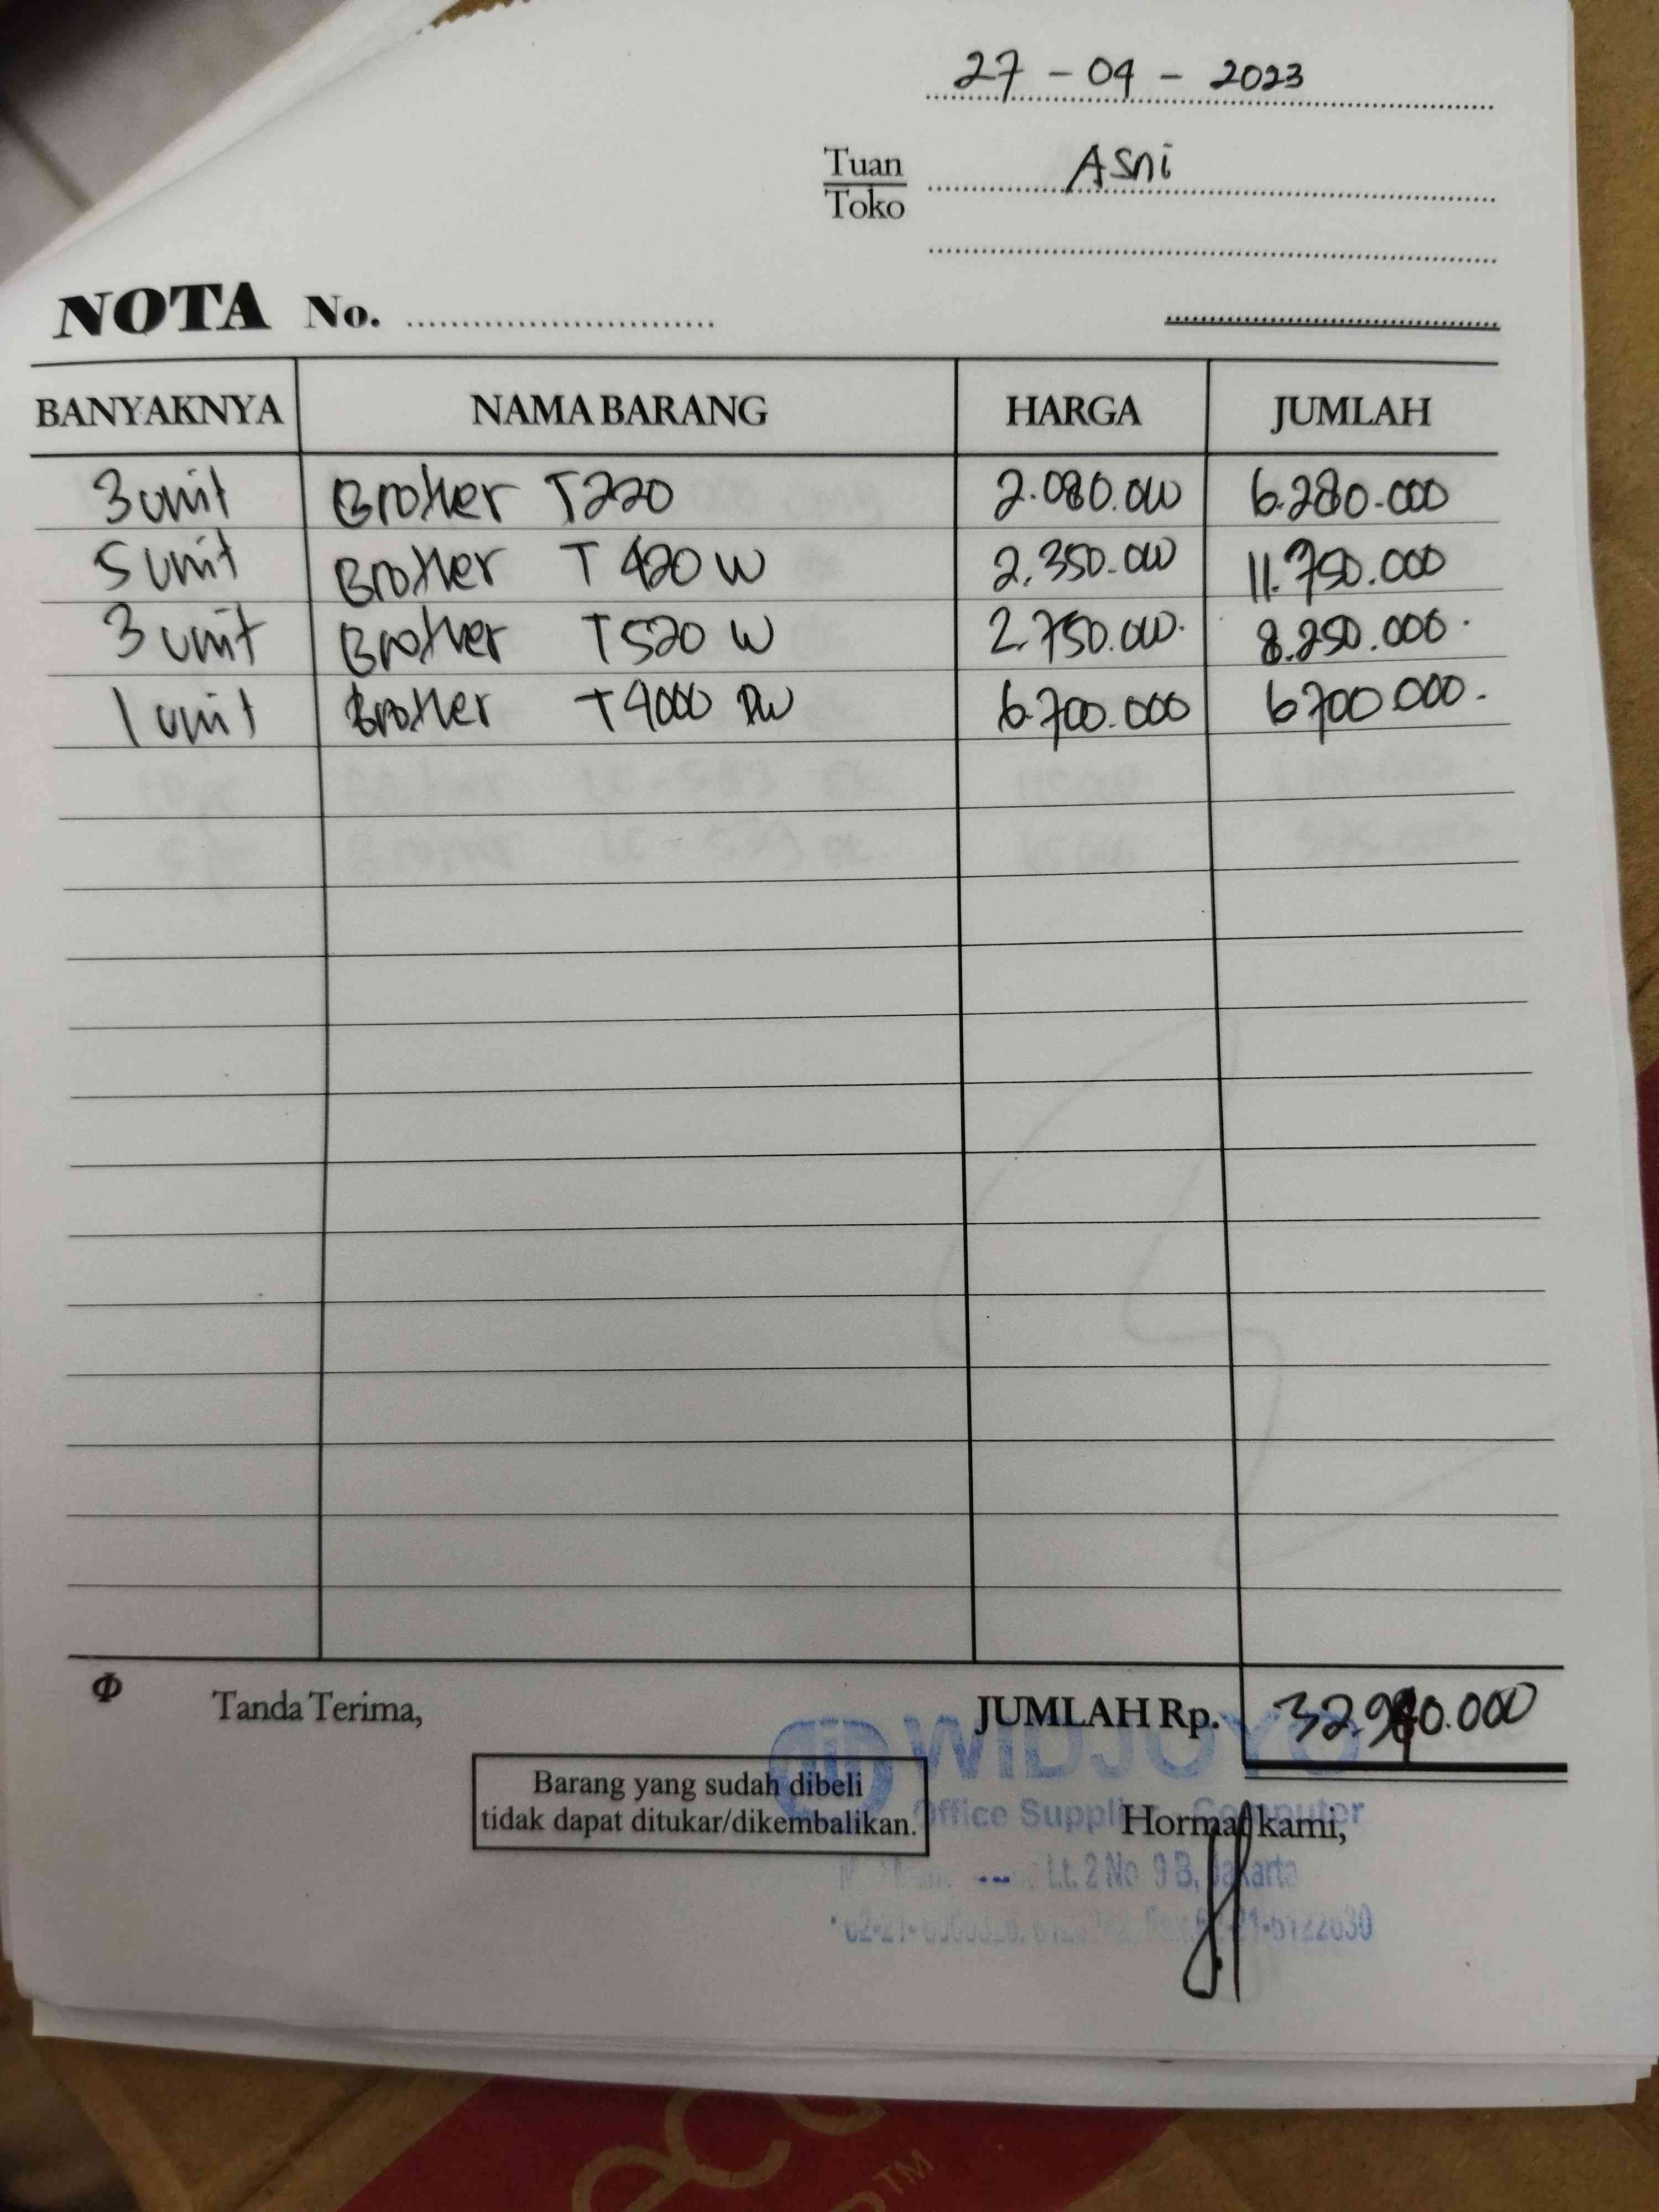 27 - 04 - 2023
Tuan
Toko
Asni
NOTA No.
BANYAKNYA NAMA BARANG HARGA JUMLAH
3 unit Brother T220 2.080.000 6.280.000
5 unit Brother T 420 W 2.350.000 11.750.000
3 unit Brother T520 W 2.750.000 8.250.000
1 unit Brother T4000 DW 6.700.000 6700.000
Φ Tanda Terima, JUMLAH Rp. 32.980.000
WIDJOYO
Barang yang sudah dibeli
tidak dapat ditukar/dikembalikan.
Office Supplies Computer
Hormat kami,
Lt. 2 No 9 B, Jakarta
TM